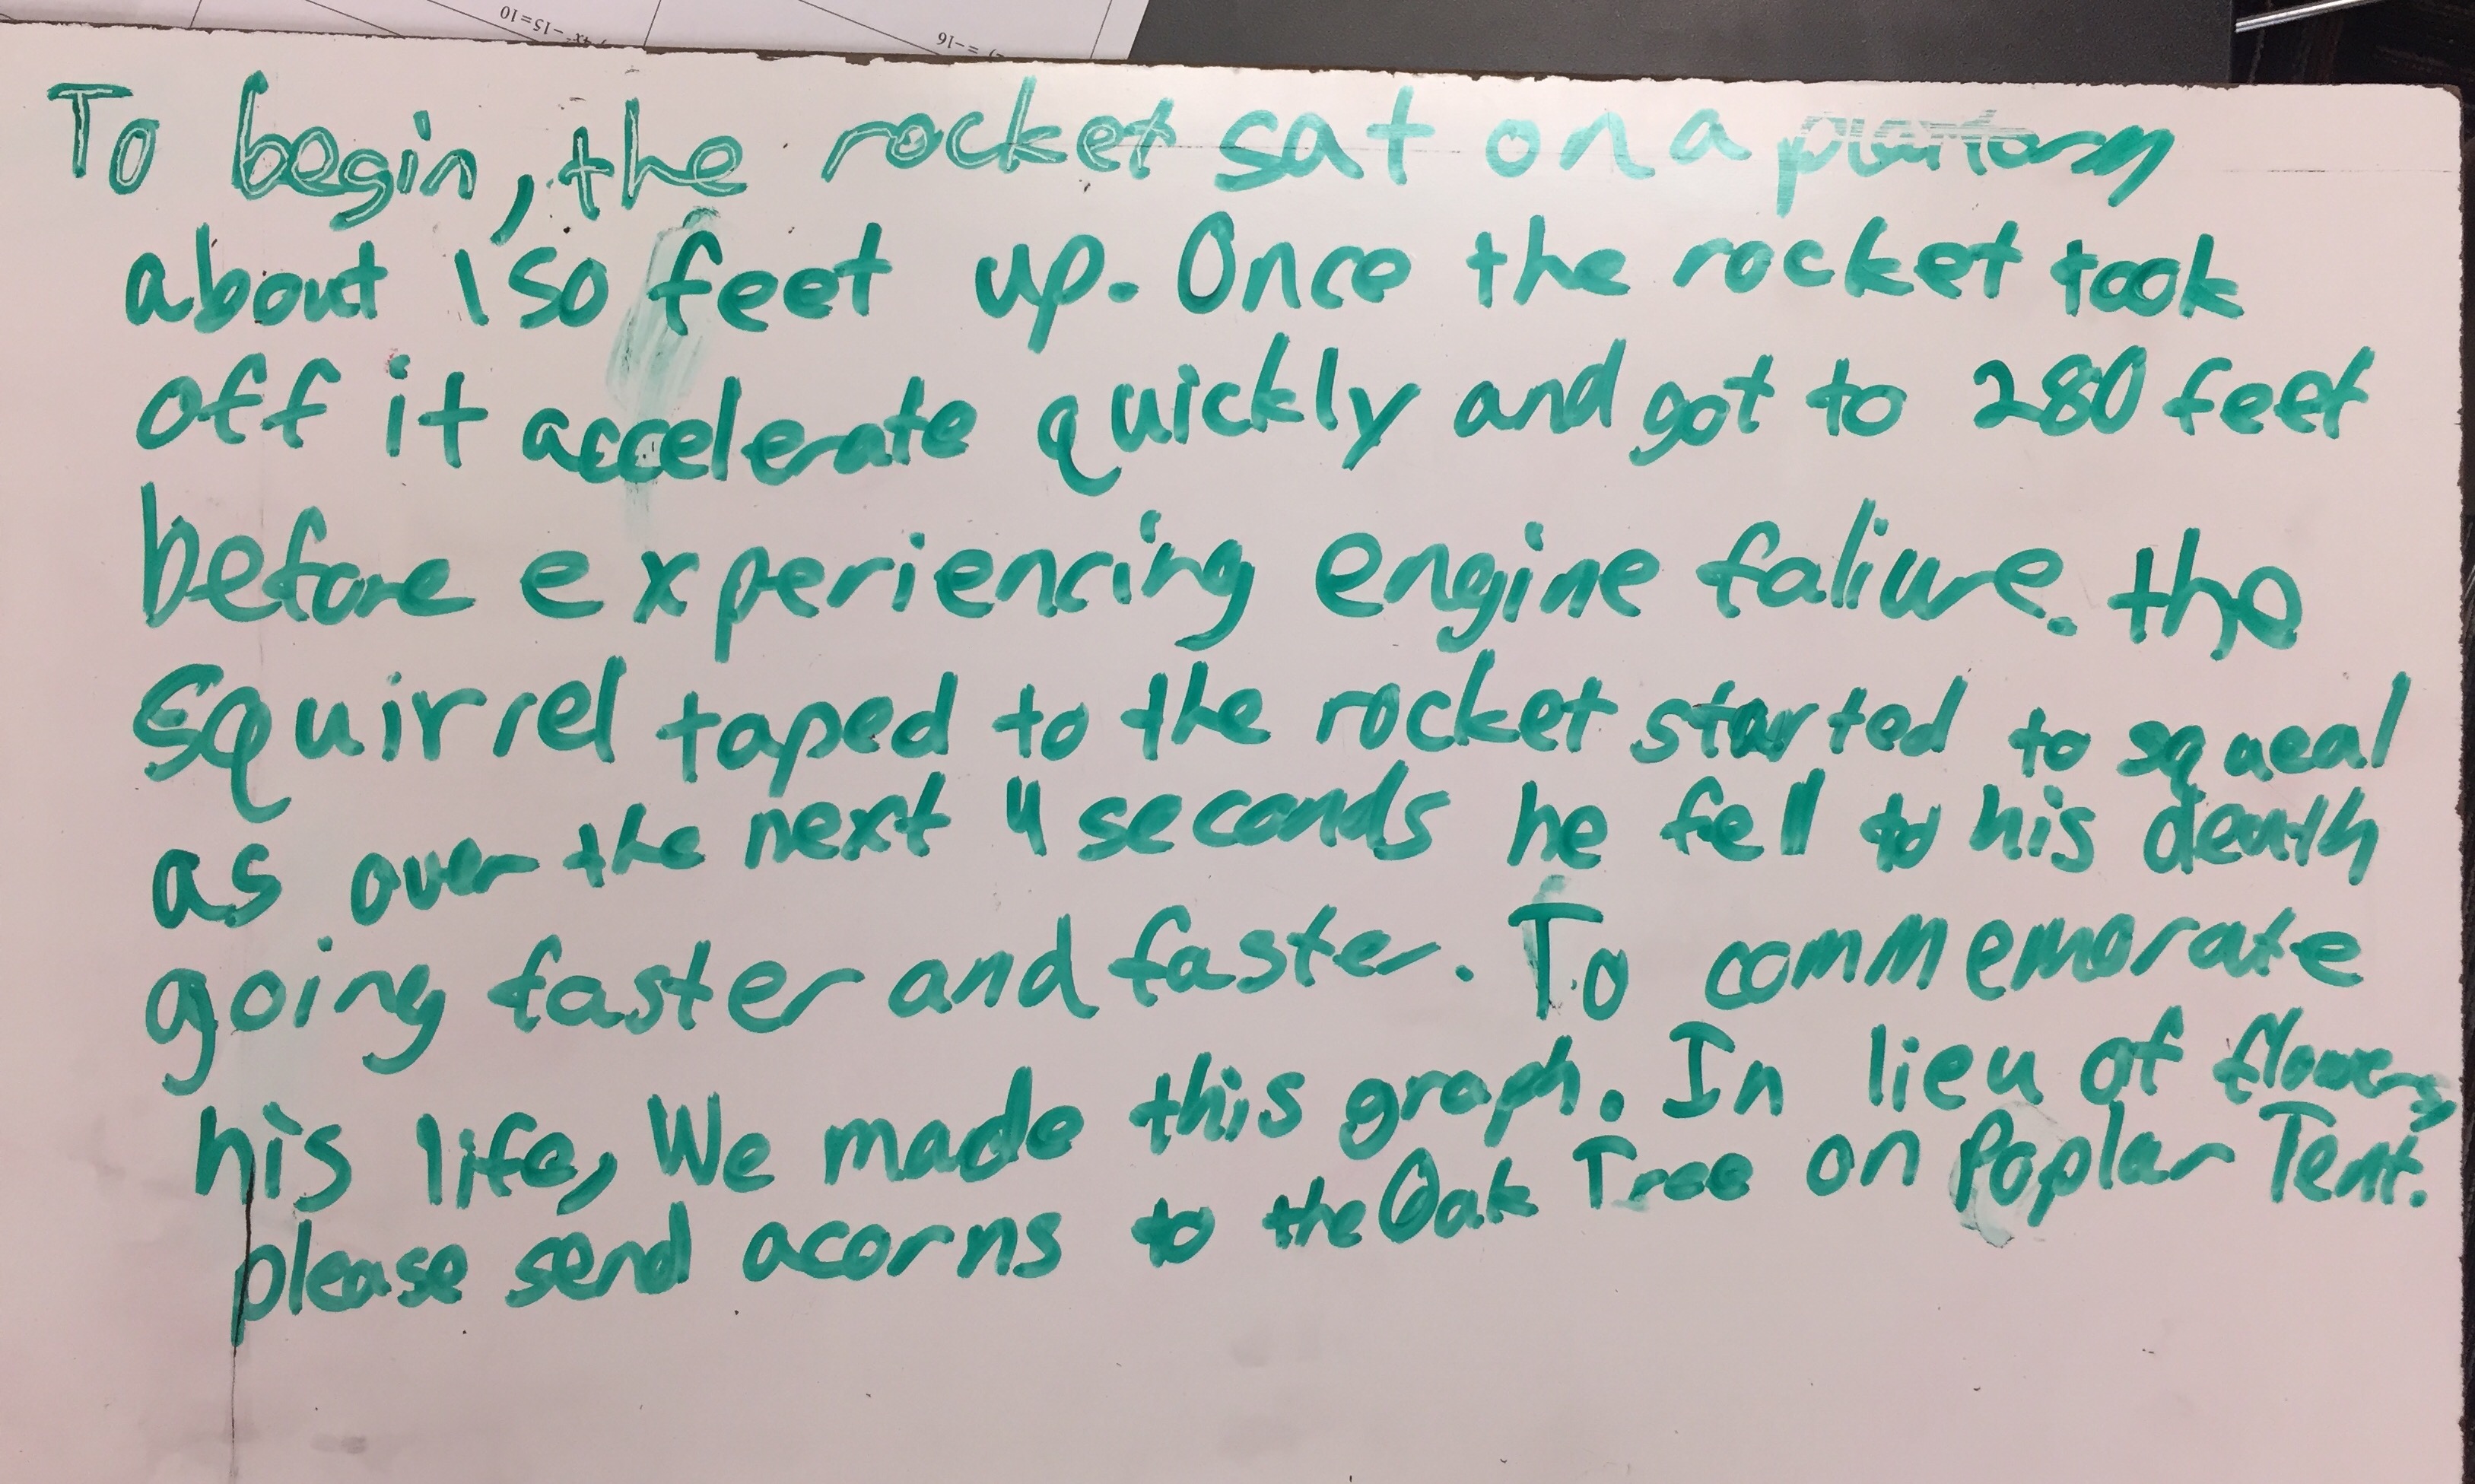 -15=10
=-16
To begin, the rocket sat on a platform
about 150 feet up. Once the rocket took
off it accelerate quickly and got to 280 feet
before experiencing engine faliure. the
squirrel taped to the rocket started to squeal
as over the next 4 seconds he fell to his death
going faster and faster. To commemorate
his life, We made this graph. In lieu of flowers,
please send acorns to the Oak Tree on Poplar Tent.